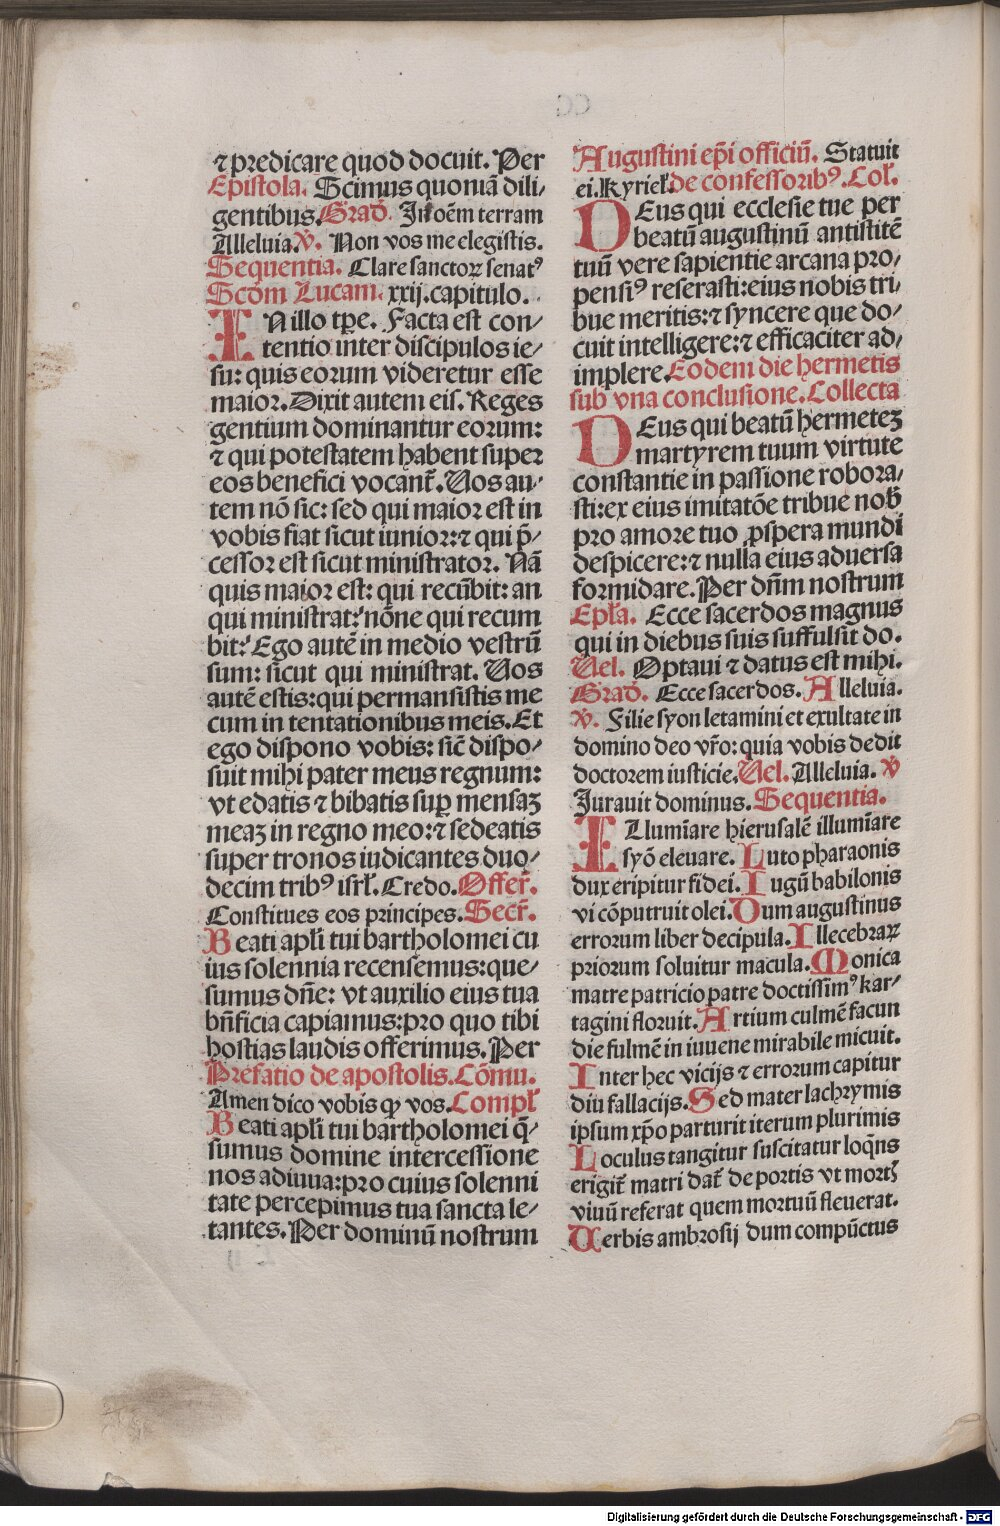 ⁊ predicare quod docuit. Per
Epistola. Scimus quoniā dili/
gentibus. Grad̄. In oēm terram
Alleluia. V̄. Non vos me elegistis.
Sequentia. Clare sanctoꝝ senatꝰ
Scd̄m Lucam. xxij. capitulo.
IN illo tp̄e. Facta est con/
tentio inter discipulos ie/
su: quis eorum videretur esse
maior. Dixit autem eis. Reges
gentium dominantur eorum:
⁊ qui potestatem habent super
eos benefici vocant̄. Uos au/
tem nō sic: sed qui maior est in
vobis fiat sicut iunior: ⁊ qui p̄/
cessor est sicut ministrator. Nā
quis maior est: qui recūbit: an
qui ministrat: nōne qui recum
bit: Ego autē in medio vestrū
sum: sicut qui ministrat. Uos
autē estis: qui permansistis me
cum in tentationibus meis. Et
ego dispono vobis: sic̄ dispo/
suit mihi pater meus regnum:
vt edatis ⁊ bibatis sup̱ mensaꝫ
meaꝫ in regno meo: ⁊ sedeatis
super tronos iudicantes duo/
decim tribꝰ isrł. Credo. Offer̄.
Constitues eos principes. Secr̄.
Beati apłi tui bartholomei cu
ius solennia recensemus: que/
sumus dn̄e: vt auxilio eius tua
bn̄ficia capiamus: pro quo tibi
hostias laudis offerimus. Per
Prefatio de apostolis. Cōmu.
Amen dico vobis ꝙ vos. Compł
Beati apłi tui bartholomei q̄/
sumus domine intercessione
nos adiuua: pro cuius solenni
tate percepimus tua sancta le/
tantes. Per dominū nostrum
Augustini ep̄i officiū. Statuit
ei. Kyrieł. de confessoribꝰ. Coł.
DEus qui ecclesie tue per
beatū augustinū antistitē
tuū vere sapientie arcana pro/
pensiꝰ reserasti: eius nobis tri/
bue meritis: ⁊ syncere que do/
cuit intelligere: ⁊ efficaciter ad/
implere. Eodem die hermetis
sub vna conclusione. Collecta
DEus qui beatū hermeteꝫ
martyrem tuum virtute
constantie in passione robora/
sti: ex eius imitatōe tribue nob̄
pro amore tuo ꝓspera mundi
despicere: ⁊ nulla eius aduersa
formidare. Per dn̄m nostrum
Epła. Ecce sacerdos magnus
qui in diebus suis suffulsit do.
Uel. Optaui ⁊ datus est mihi.
Grad̄. Ecce sacerdos. Alleluia.
V̄. Filie syon letamini et exultate in
domino deo vr̄o: quia vobis dedit
doctorem iusticie. Uel. Alleluia. V̄
Jurauit dominus. Sequentia.
ILlumīare hierusalē illumīare
syō eleuare. Luto pharaonis
dux eripitur fidei. Iugū babilonis
vi cōputruit olei. Dum augustinus
errorum liber decipula. Illecebraꝝ
priorum soluitur macula. Monica
matre patricio patre doctissimꝰ kar/
tagini floruit. Artium culmē facun
die fulmē in iuuene mirabile micuit.
Inter hec vicijs ⁊ errorum capitur
diu fallacijs. Sed mater lachrymis
ipsum xp̄o parturit iterum plurimis
Loculus tangitur suscitatur loq̄ns
erigit̄ matri dat̄ de portis vt mortꝭ
viuū referat quem mortuū fleuerat.
Verbis ambrosij dum compūctus
Digitalisierung gefördert durch die Deutsche Forschungsgemeinschaft - DFG